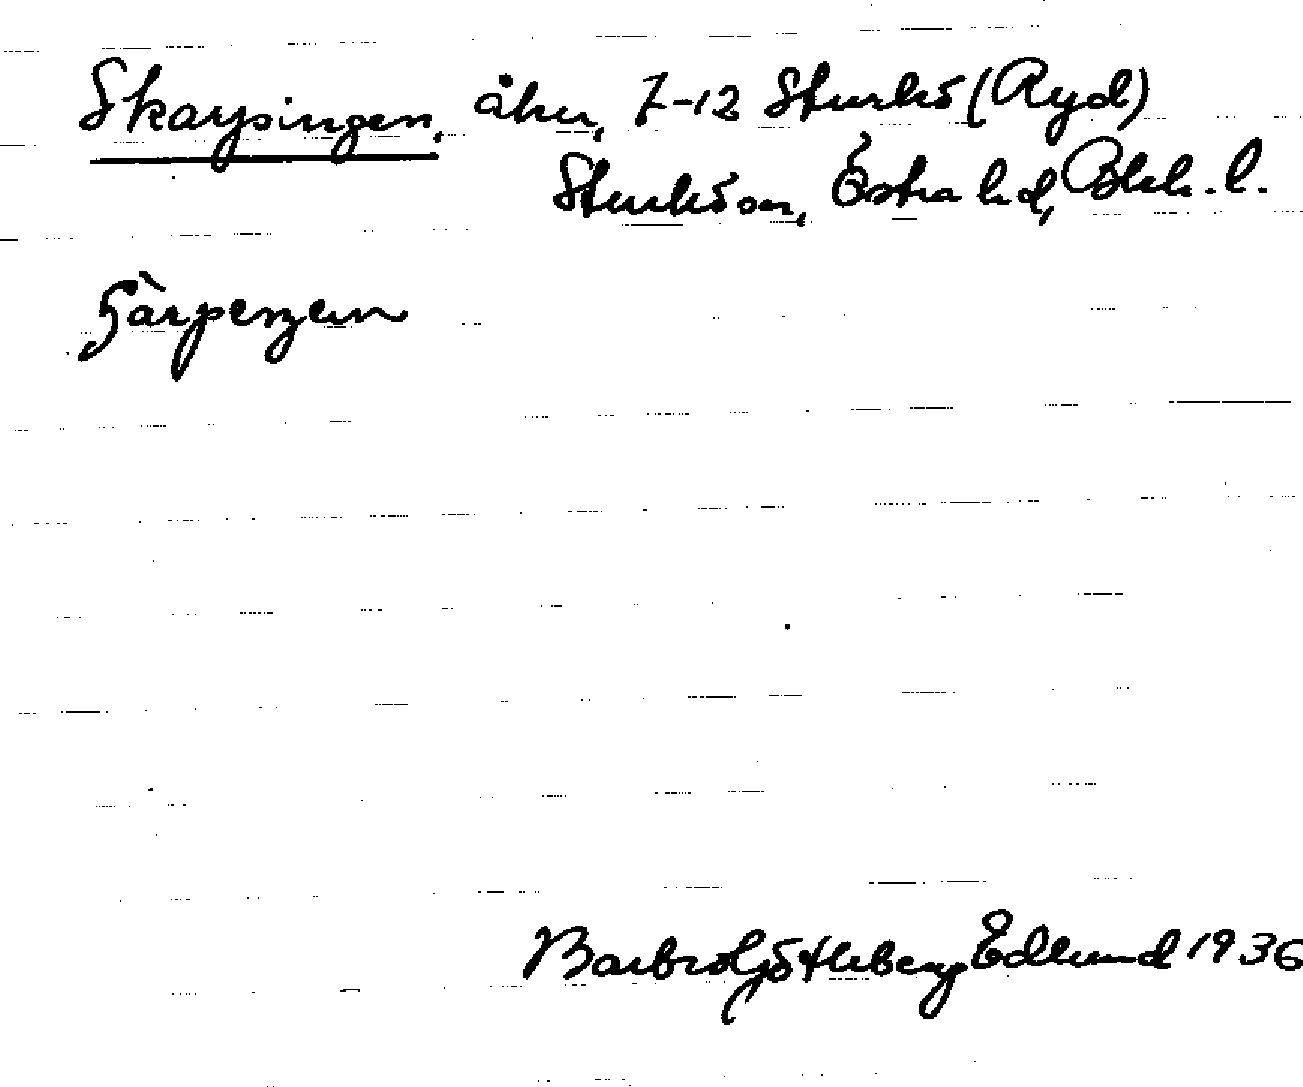 Skarpingen, åker, 7-12 Sturkö (Ryd)
Sturkö sn, Östra hd, Blek. l.
Barbro Götleberg Edlund 1936